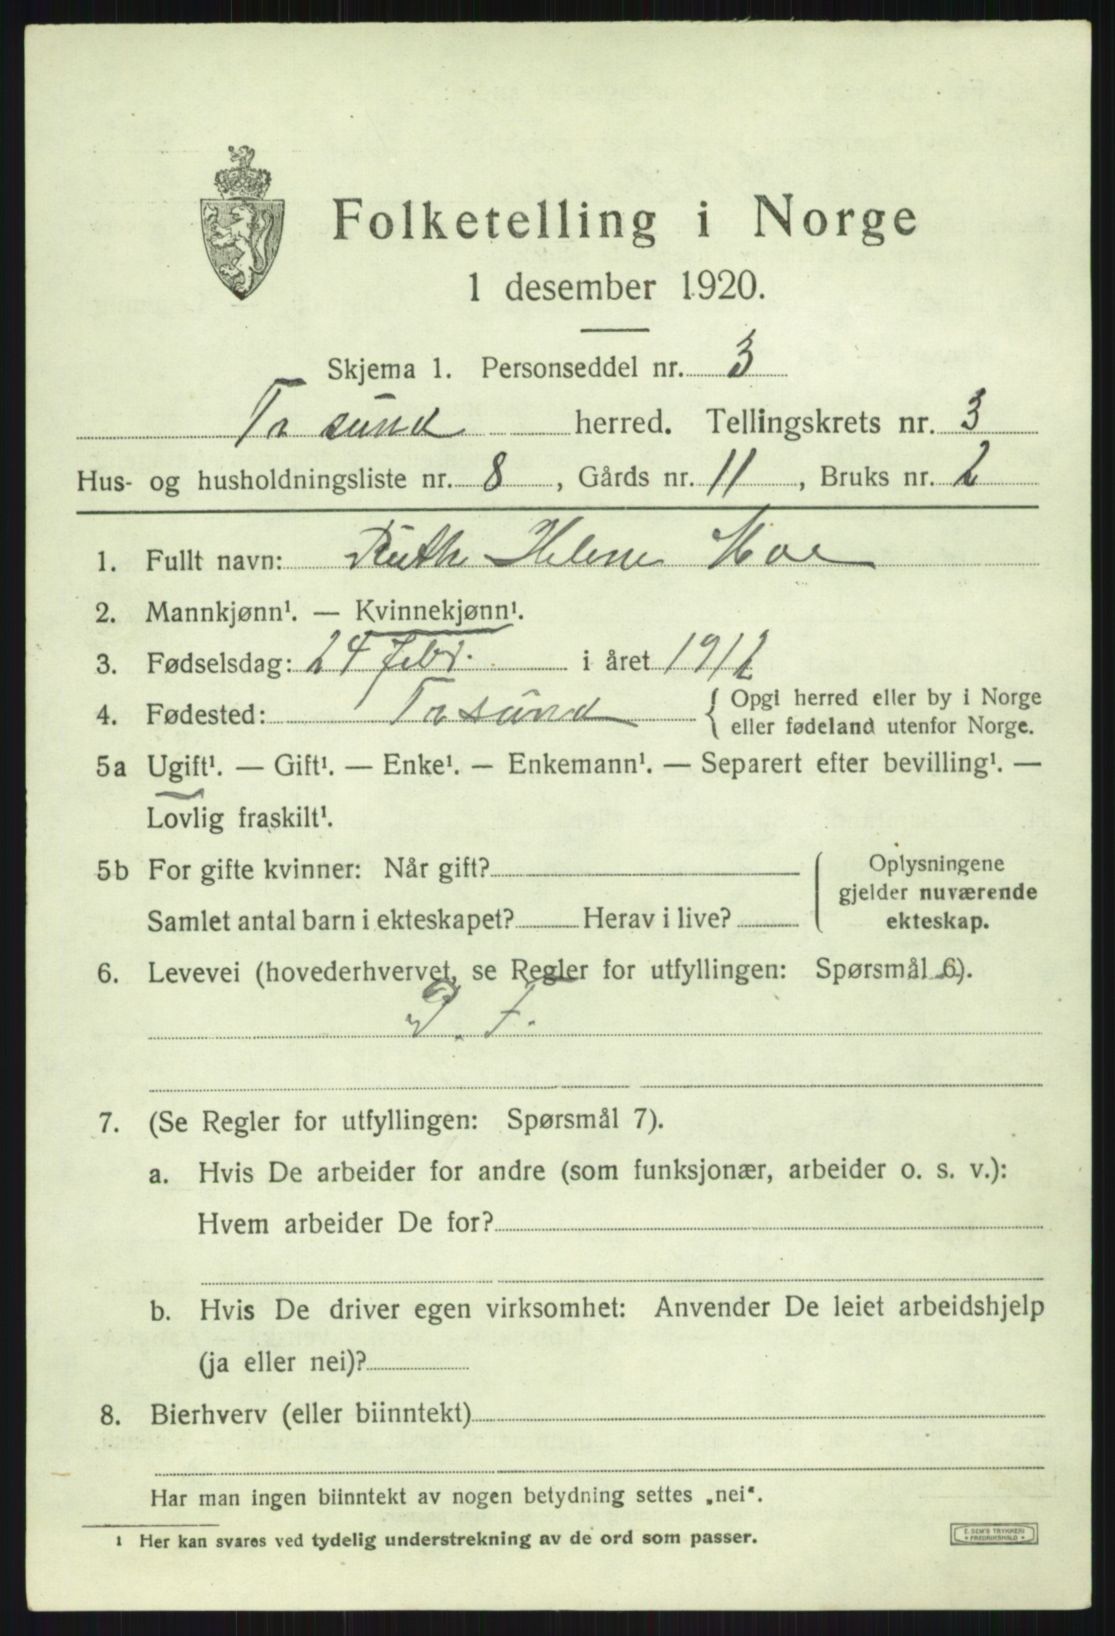 Folketelling i Norge
1 desember 1920.
Skjema 1. Personseddel nr. 3
Tosund herred. Tellingskrets nr. 3
Hus- og husholdningsliste nr. 8, Gårds nr. 11, Bruks nr. 2
1. Fullt navn: Ruth Helene Moe
2. Mannkjønn¹. — Kvinnekjønn¹.
3. Fødselsdag: 24 febr. i året 1912
4. Fødested: Tosund { Opgi herred eller by i Norge
eller fødeland utenfor Norge.
5a Ugift¹. — Gift¹. — Enke¹. — Enkemann¹. — Separert efter bevilling¹. —
Lovlig fraskilt¹.
5b For gifte kvinner: Når gift?
Samlet antal barn i ekteskapet? Herav i live?
Oplysningene
gjelder nuværende
ekteskap.
6. Levevei (hovederhvervet, se Regler for utfyllingen: Spørsmål 6).
7. (Se Regler for utfyllingen: Spørsmål 7).
a. Hvis De arbeider for andre (som funksjonær, arbeider o. s. v.):
Hvem arbeider De for?
b. Hvis De driver egen virksomhet: Anvender De leiet arbeidshjelp
(ja eller nei)?
8. Bierhverv (eller biinntekt)
Har man ingen biinntekt av nogen betydning settes „nei“.
¹ Her kan svares ved tydelig understrekning av de ord som passer.
E. SEM'S TRYKKERI
• FREDRIKSHALD •